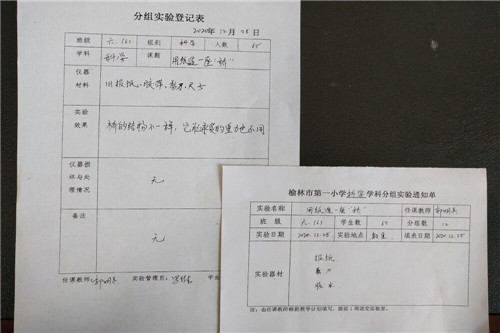 分组实验登记表
2020年12月25日
班级 六.(6) 组别 科学 人数 65
学科 科学 课题 用纸造一座"桥"
仪器材料 旧报纸、胶带、剪刀、尺子
实验效果 桥的结构不一样,它能承受的重力也不同
仪器损坏与处理情况 无
备注 无
任课教师: 实验管理员: 学生
榆林市第一小学科学学科分组实验通知单
实验名称 用纸造一座"桥" 任课教师
班级 六.(6) 学生数 65 分组数 12
实验日期 2020.12.25 实验地点 教室 填表日期 2020.12.25
实验器材 报纸
剪刀
胶水
注:由任课教师根据教学计划填写,提前1周送交实验室。